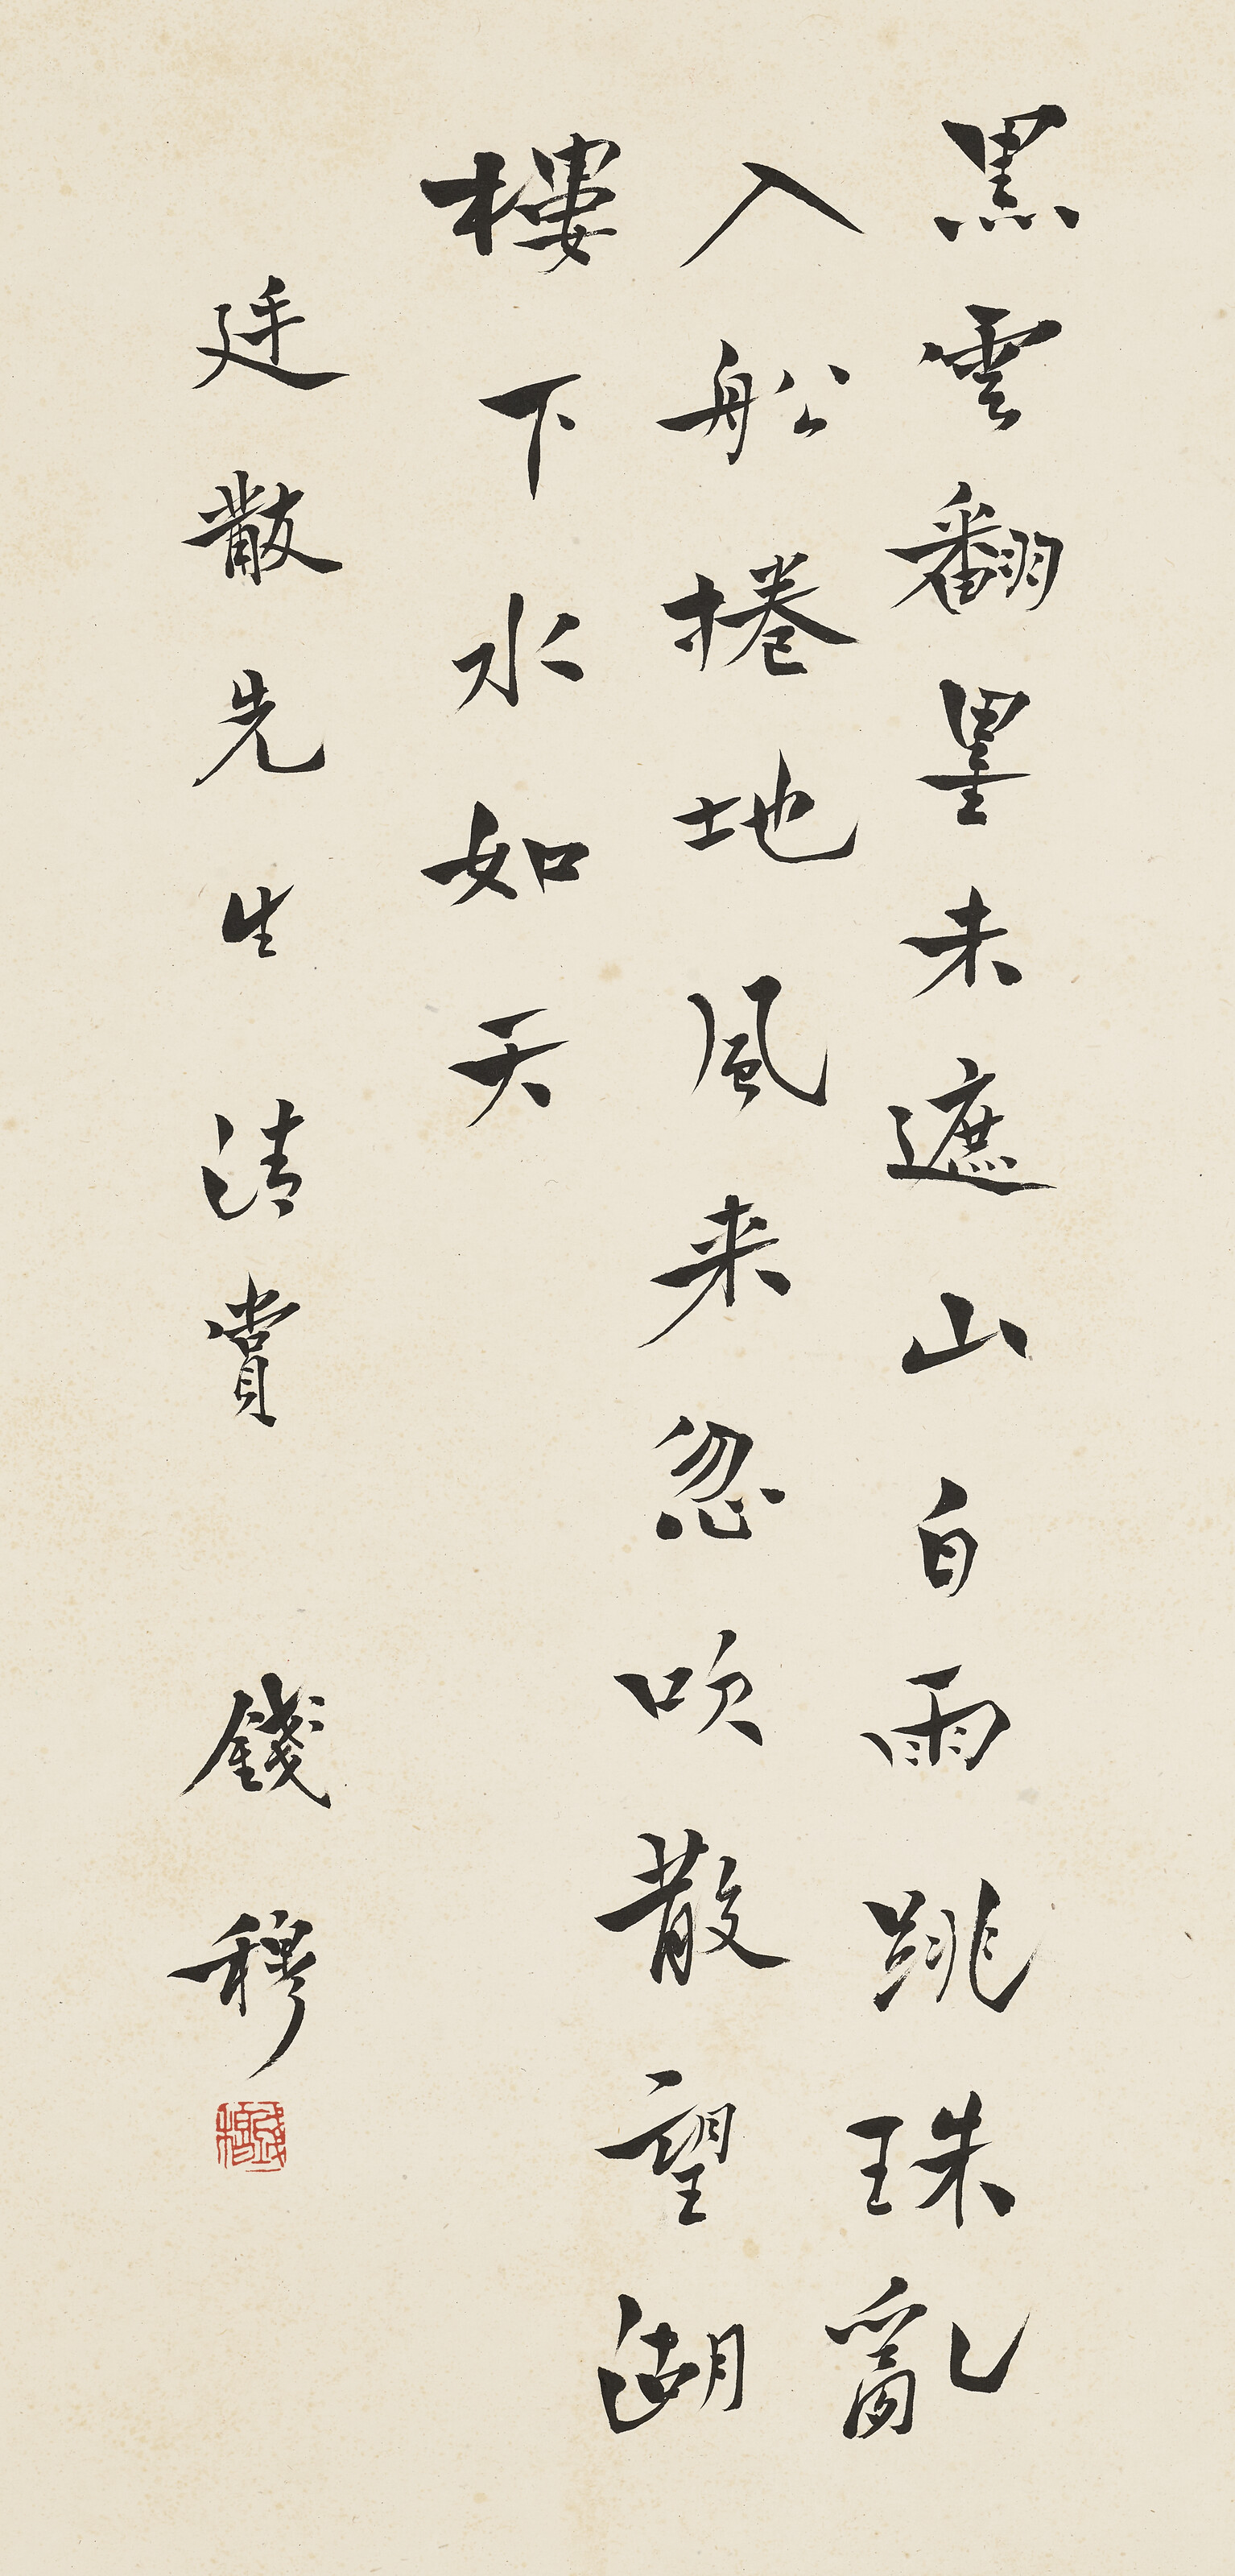 黑雲翻墨未遮山白雨跳珠亂
入船捲地風来忽吹散望湖
樓下水如天
廷黻先生清賞 錢穆
錢穆